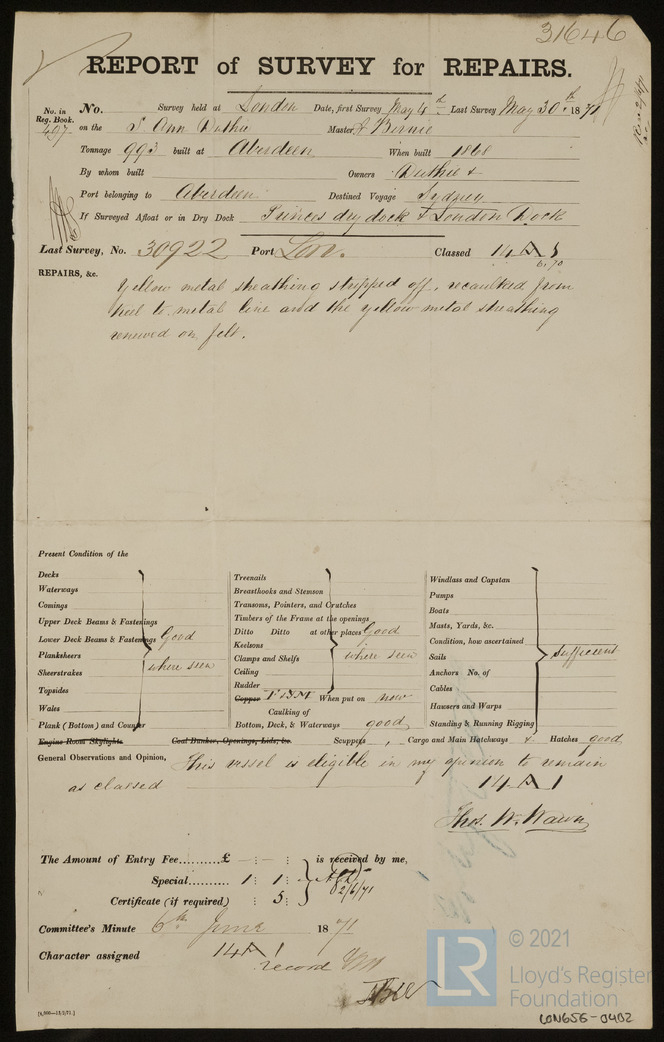 31646
REPORT of SURVEY for REPAIRS.
No. in Reg. Book. 497
No. Survey held at London Date, first Survey May 4th Last Survey May 30th 1871
on the S Ann Duthie Master J Birnie
Tonnage 993 built at Aberdeen When built 1868
By whom built Owners Duthie &
Port belonging to Aberdeen Destined Voyage Sydney
If Surveyed Afloat or in Dry Dock Princes dry dock & London Dock
Last Survey, No. 30922 Port Lon. Classed 14 A 1
6.70
REPAIRS, &c.
Yellow metal sheathing stripped off, recaulked from
keel to metal line and the yellow metal sheathing
renewed on felt.
Present Condition of the
Decks
Waterways
Comings
Upper Deck Beams & Fastenings
Lower Deck Beams & Fastenings
Planksheers
Sheerstrakes
Topsides
Wales
Plank (Bottom) and Counter
Good
where seen
Treenails
Breasthooks and Stemson
Transoms, Pointers, and Crutches
Timbers of the Frame at the openings
Ditto Ditto at other places
Keelsons
Clamps and Shelfs
Ceiling
Rudder
Good
where seen
Copper F & YM When put on now
Caulking of
Bottom, Deck, & Waterways good
Windlass and Capstan
Pumps
Boats
Masts, Yards, &c.
Condition, how ascertained
Sails
Anchors No. of
Cables
Hawsers and Warps
Standing & Running Rigging
sufficient
Engine Room Skylights Coal Bunker, Openings, Lids, &c. Scuppers , Cargo and Main Hatchways & Hatches good
General Observations and Opinion, This vessel is eligible in my opinion to remain
as classed 14 A 1
Thos. W. Wawn
The Amount of Entry Fee..........£ – : – : is received by me,
Special........... 1 : 1 :
2/6/71
Certificate (if required) : 5 :
Committee's Minute 6th June 1871
Character assigned 14 A 1
record
© 2021
LR
Lloyd's Register
Foundation
LON656-0402